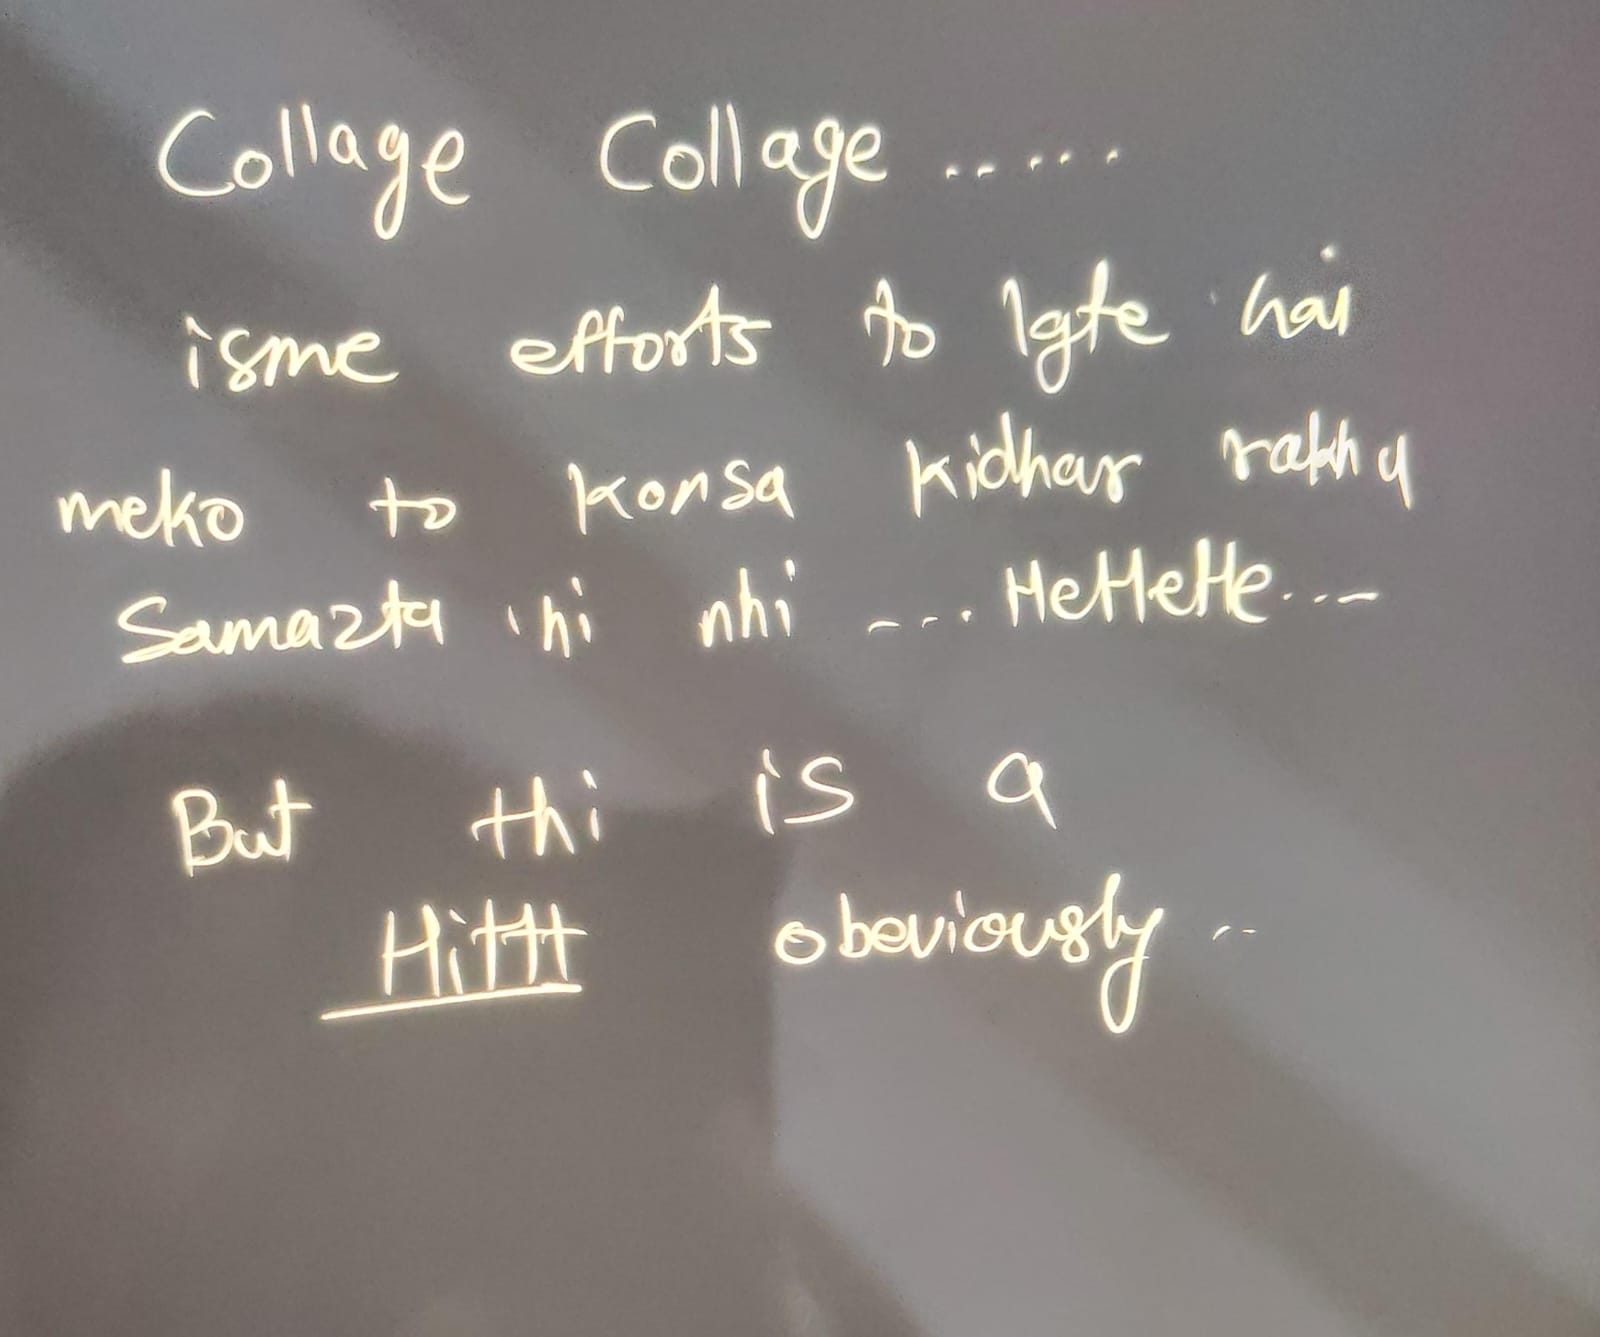 Collage Collage ......
isme efforts to lgte hai
meko to konsa kidhar rakhu
Samazta hi nhi .... HeHeHe....
But thi is a
Hittt obeviously ..